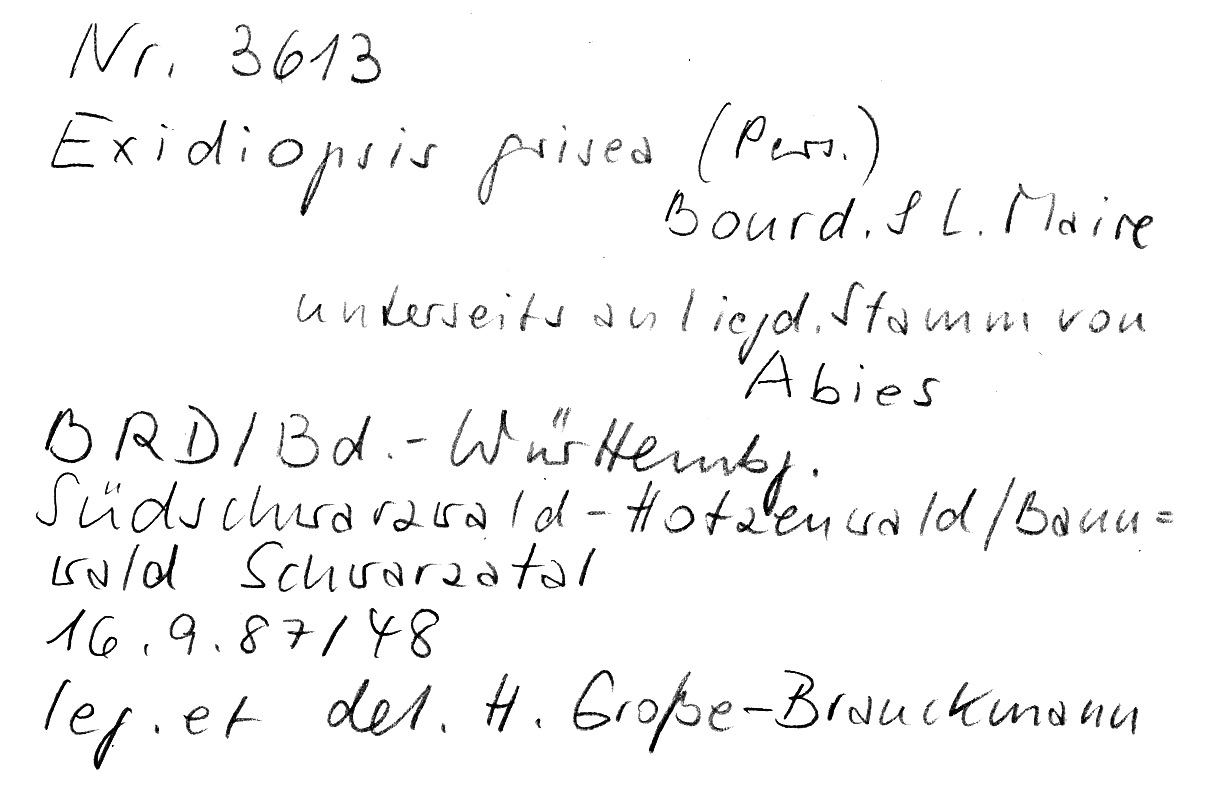 Nr. 3613
Exidiopsis grisea (Pers.)
Bourd. & L. Maire
unterseits an liegd. Stamm von
Abies
BRD/Bd.-Württembg.
Südschwarzwald-Hotzenwald/Bann=
wald Schwarzatal
16.9.87/48
leg. et det. H. Große-Brauckmann